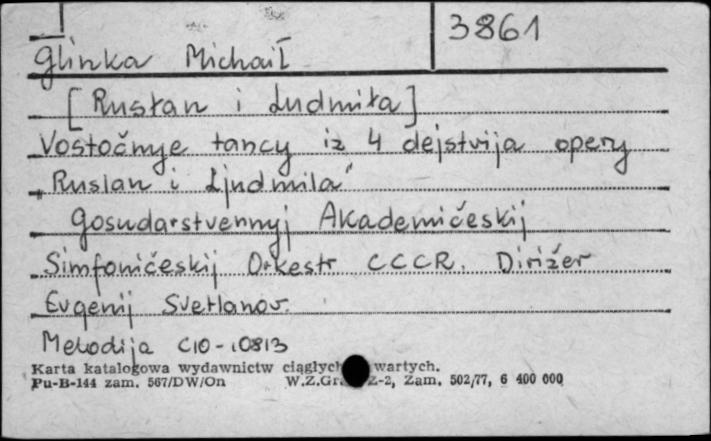 3861
Glinka Michaił
[Rusłan i Ludmiła]
Vostočnye tancy iz 4 dejstvija opery
„Ruslan i Ljudmila"
Gosudarstvennyj Akademičeskij
Simfoničeskij Orkestr CCCR. Dirižer
Evgenij Svetlanov.
Melodija C10-10813
Karta katalogowa wydawnictw ciągłych wartych.
Pu-B-144 zam. 567/DW/On W.Z.Gr. Z-2, Zam. 502/77, 6 400 000